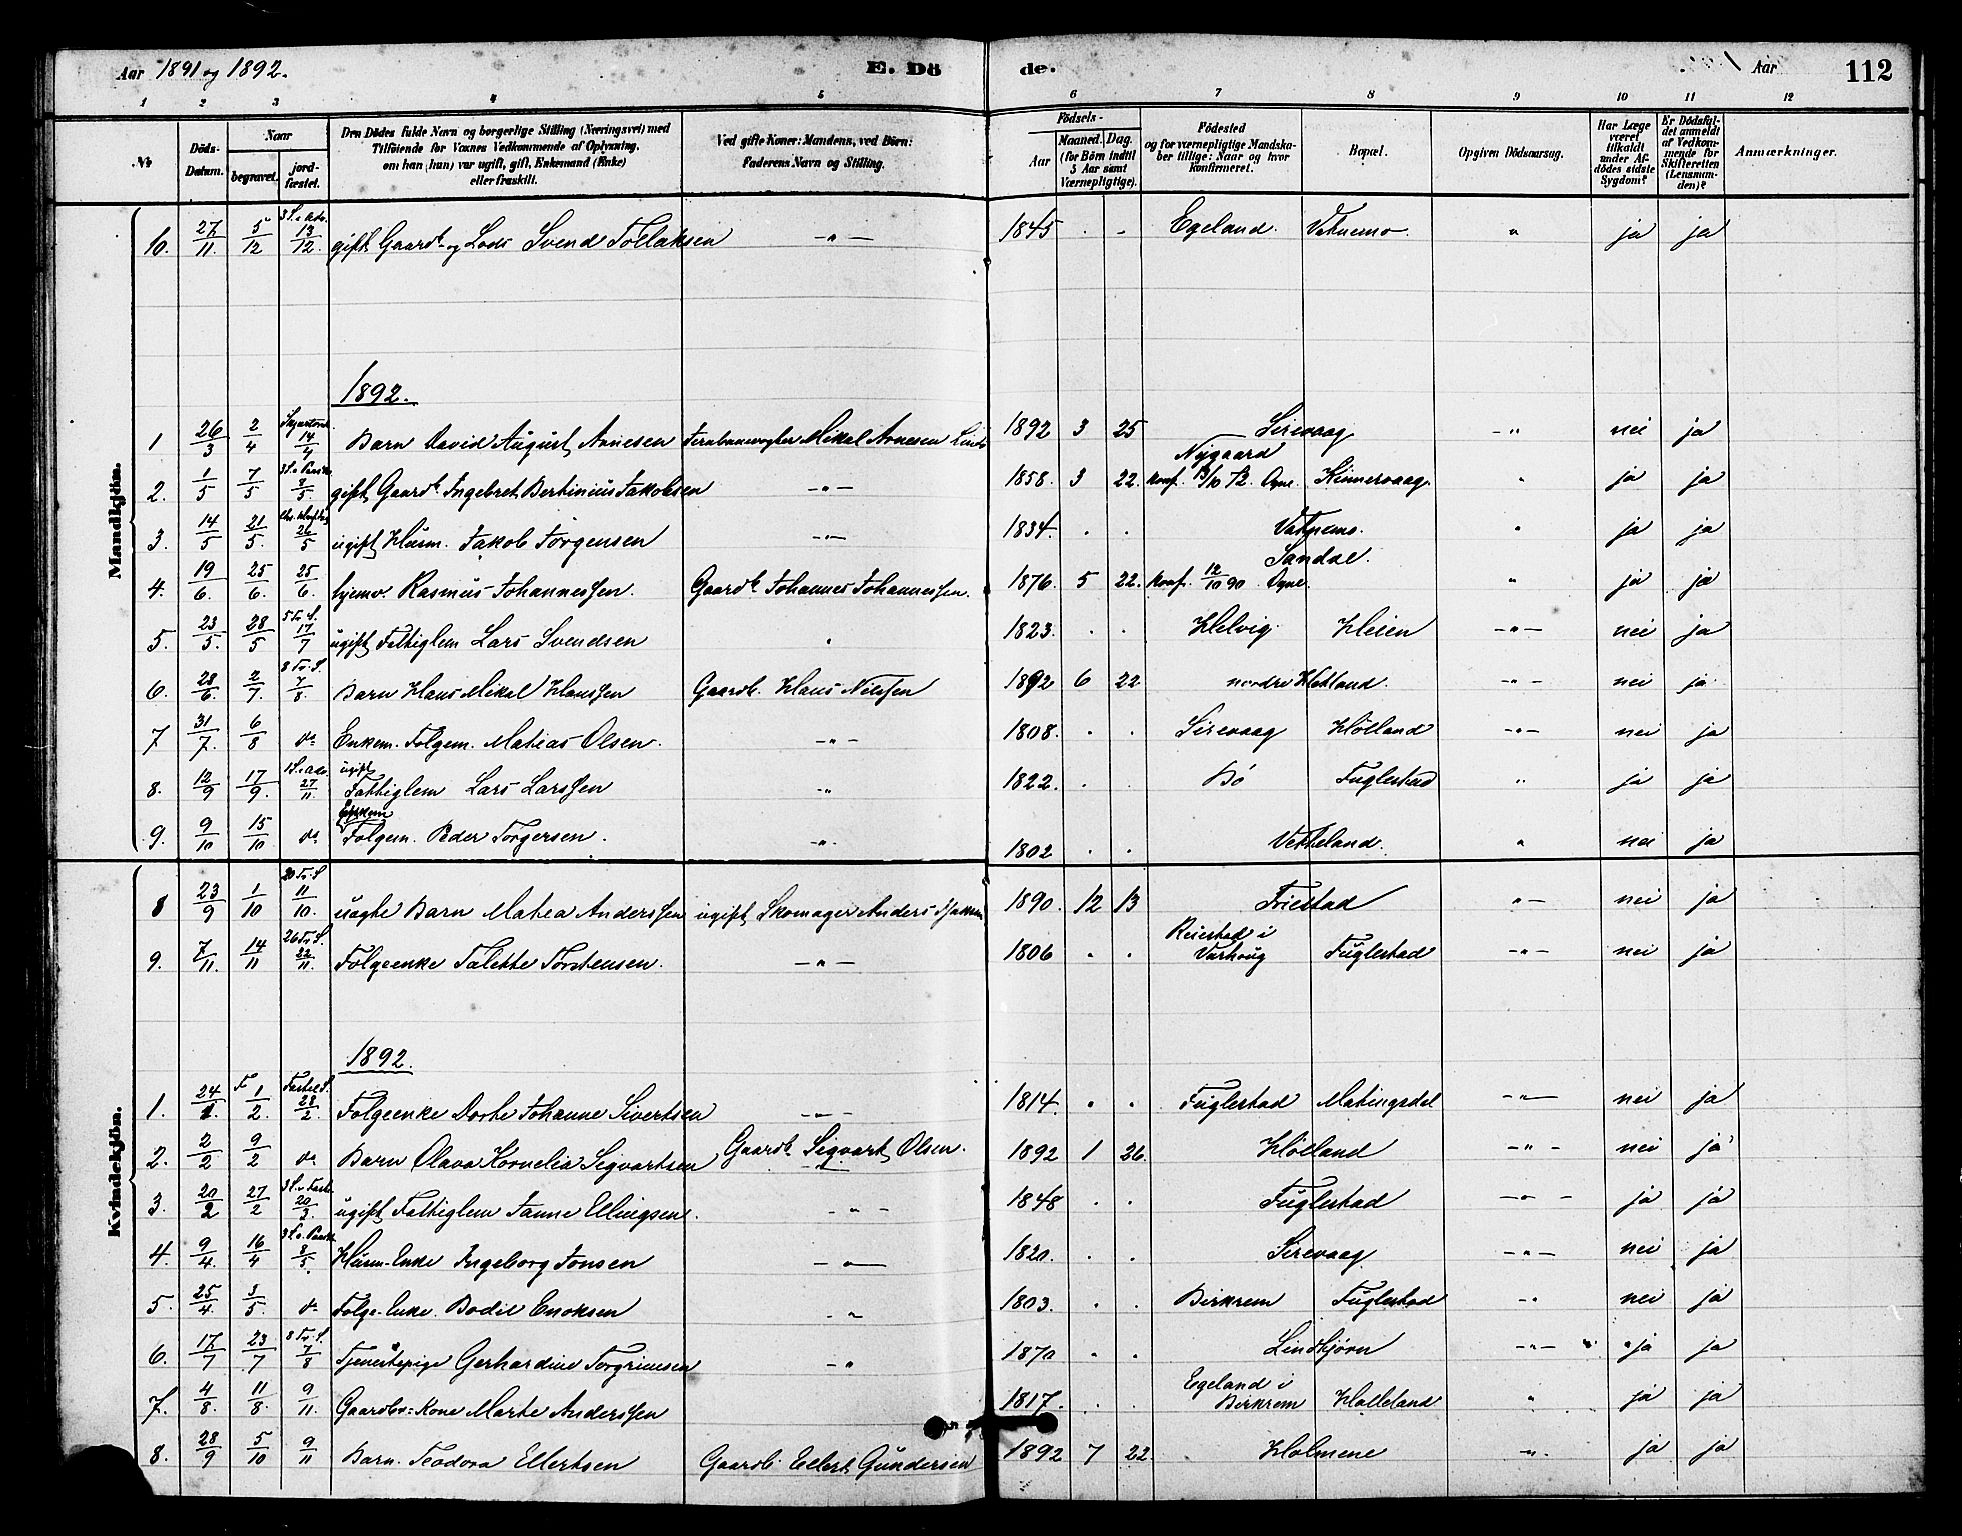 Aar 1891 og 1892. E. Dö de. Aar 112
1 2 3 4 5 6 7 8 9 10 11 12
No
Döds-Datum.
Naar
begravet.
jord-fæstet.
Den Dödes fulde Navn og borgerlige Stilling (Næringsvei) med
Tilföiende for Voxnes Vedkommende af Oplysning,
om han (hun) var ugift, gift, Enkemand (Enke)
eller fraskilt.
Ved gifte Koner: Mandens, ved Börn:
Faderens Navn og Stilling.
Födsels-
Aar
Maaned. Dag.
(for Börn indtil
5 Aar samt
Værnepligtige).
Födested
og for værnepligtige Mandska-
ber tillige: Naar og hvor
konfirmeret.
Bopæl.
Opgiven Dödsaarsag.
Har Læge
været
tilkaldt
under Af-
dödes sidste
Sygdom?
Er Dödsfal-
det anmeldt
af Vedkom-
mende for
Skifteretten
(Lensman-
den)?
Anmærkninger.
Mandkjön.
10. 27/11. 5/12 3 S. i Adv. 13/12. gift Gaardb. og Lods Svend Tollaksen -"- 1845 . . Egeland. Vatnemo. " ja ja
1892.
1 26/3 2/4 14/4 Barn David August Arnesen Jernbanevogter Mikal Arnesen 1892 3 25 Sirevaag -"- nei ja
2. 1/5 7/5 8/5. gift Gaardb. Ingebret Bertinius Jakobsen -"- 1858. 3 22. Nygaard konf. /10 72. Ogne. Hinnervaag. " ja ja
3. 14/5 21/5. 26/5 ugift Husm. Jakob Jørgensen -"- 1834. . . Vatnemo. " ja ja
4. 19/6. 25/6. 25/6. hjemv. Rasmus Johannessen. Gaardb. Johannes Johannessen. 1876. 5 22. Sandal. konf. 12/10 90 Ogne. " ja ja
5. 23/5. 28/5 5 Tr. S. 17/7 ugift Fattiglem Lars Svendsen " 1823. . . Helvig. Heien -"- nei ja
6. 28/6. 2/7. 8 Tr. S. 7/8. Barn Hans Mikal Hanssen Gaardb. Hans Nilssen 1892 6 22 nordre Hetland. -"- nei ja
7 31/7. 6/8 do Enkem. Folgem. Matias Olsen. -"- 1808. . . Sirevaag Hölland -"- nei ja
8. 12/9 17/9. 1 S. i Adv. 27/11. ugift Fattiglem Lars Larssen -"- 1822. . . Bö Fuglestad " ja ja
9. 9/10 15/10 do Enkem Folgem. Peder Torgersen. -"- 1802 . . Vetteland. " nei ja
Kvindekjön.
8 23/9 1/10 20 Tr. S 11/10. uægte Barn Matea Anderssen ugift Skomager Anders 1890. 12 13 Friestad "- nei ja
9. 7/11. 14/11 26 Tr. S. 22/11. Folgeenke Talette Torstensen. -"- 1806 . . Reiestad i Varhoug Fuglestad -"- nei ja
1892.
1. 24/1. 1/2. Fastel. S. 28/2. Folgeenke Dorte Johanne Sivertsen -"- 1814. . . Fuglestad Matingsdal -"- nei ja
2. 2/2 9/2 do Barn Olava Kornelia Sigvartsen Gaardb. Sigvart Olsen. 1892 1 26. Hölland -"- nei ja
3. 20/2 27/2 3 S. i Fast. 20/3. ugift Fattiglem Janne Ellingsen. -"- 1848 . . Fuglestad -"- ja ja
4. 9/4. 16/4 8/5. Husm-enke Ingeborg Jonsen -"- 1820. . . Sirevaag -"- nei ja
5. 25/4. 3/5. do Folge-enke. Bodil Enoksen -"- 1803. . . Birkrem Fuglestad -" nei ja
6. 17/7 23/7 8 Tr. S. 7/8 Tjenestepige Gerhardine Torgrimsen -" 1870 . . Lindtjørn -"- ja ja
7. 4/8. 11/8. 9/11. Gaardbr: Kone Marte Anderssen 1817. . . Egeland i Birkrem Hølleland " ja ja
8. 28/9 5/10 9/11 Barn. Teodora Ellertsen Gaardb. Ellert Gundersen 1892 7 22. Holmene " ja ja